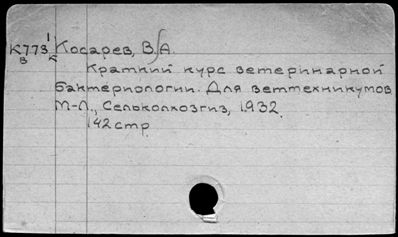 1
К773 Косарев, В.А.
в к
Краткий курс ветеринарной
бактериологии. Для веттехникумов
М-Л., Сельколхозгиз, 1932.
142стр